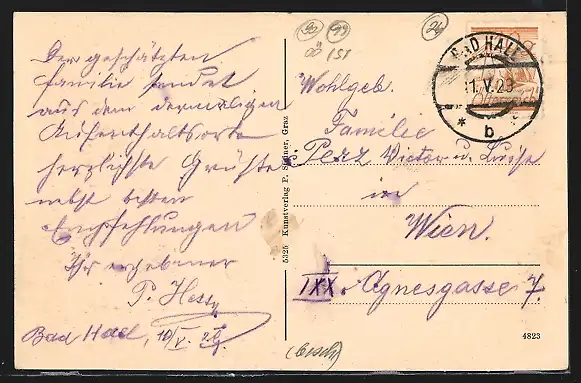 Der geschätzten
Familie sendet
aus dem derweiligen
Aufenthaltsorte
herzlichste Grüsse
nebst besten
Empfehlungen
Ihr ergebener
P. Hessy
Bad Hall, 10/V. 29.
5325 Kunstverlag P. Graz
30
99
24
öö 1ST
BAD HALL
11.V.29
* b *
Wohlgeb.
Familie
Perz Victor u. Luise
in
Wien.
IXX. Agnesgasse 7.
4823
(besch)